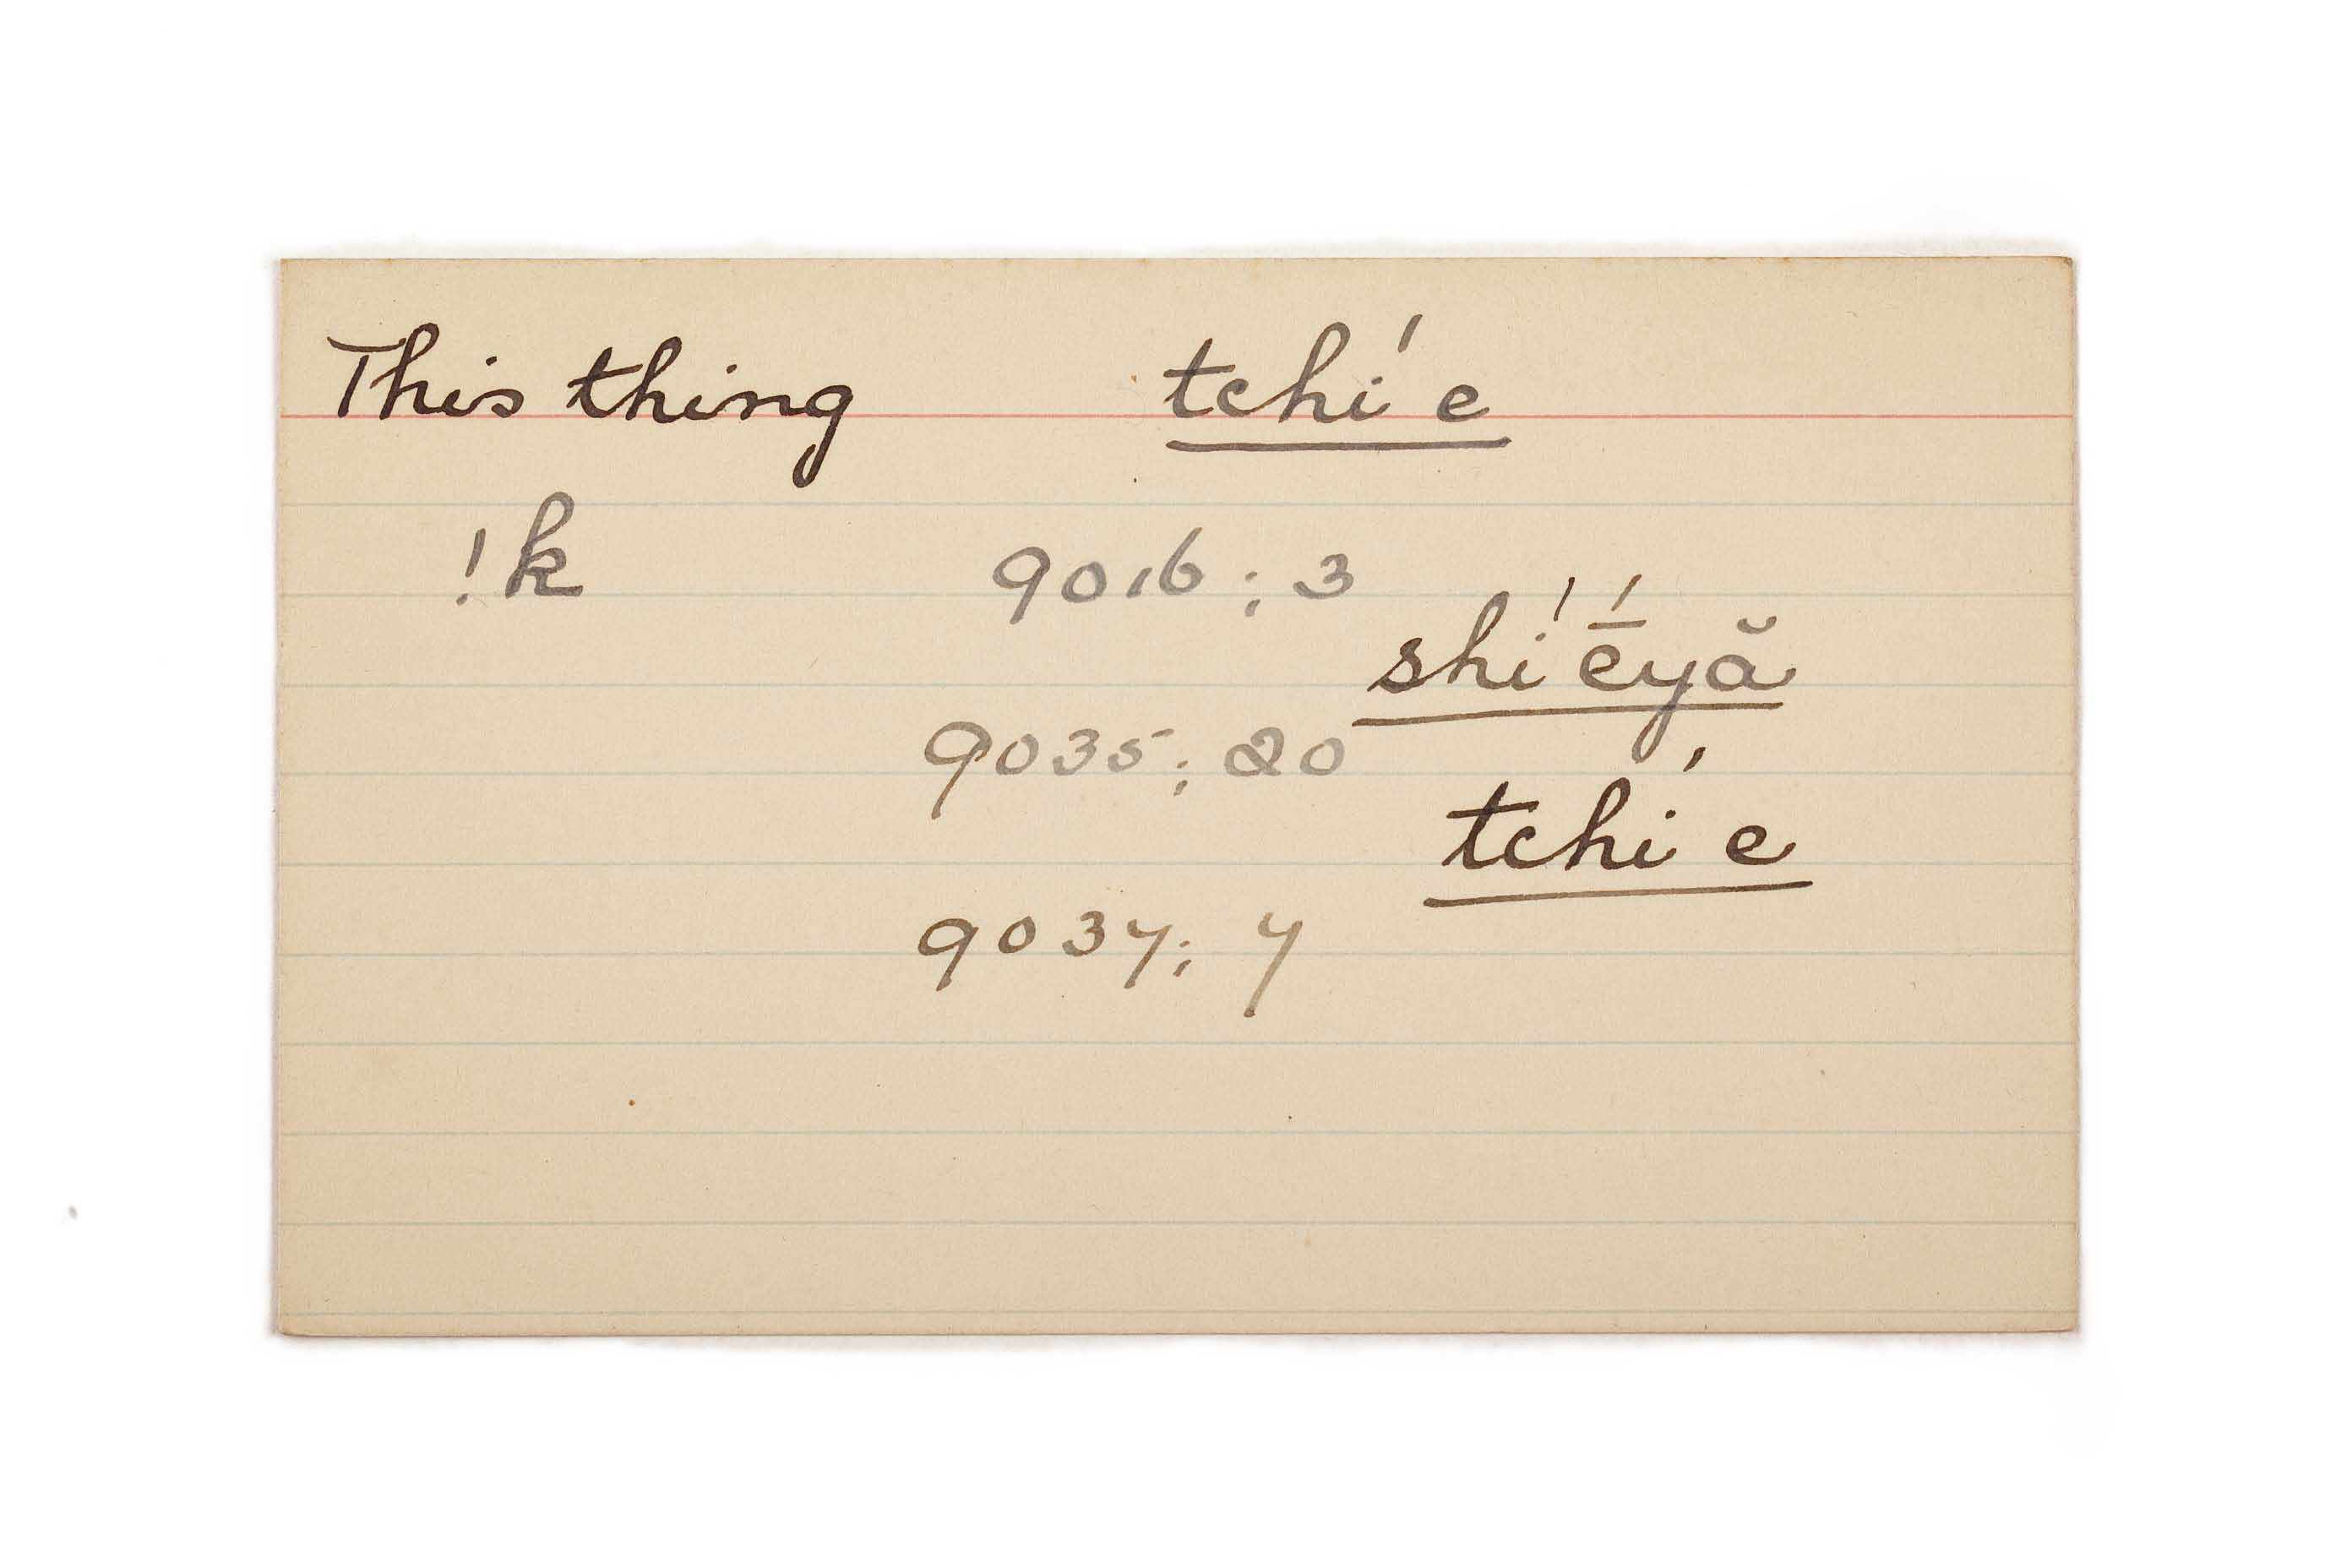 This thing tchí e
!k 9016; 3
shí ḗyă
9035; 20
tchí e
9037; 7